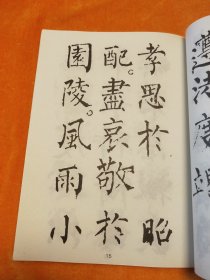 孝思於昭
配盡哀敬於
園陵風雨小
遵法度竭
15